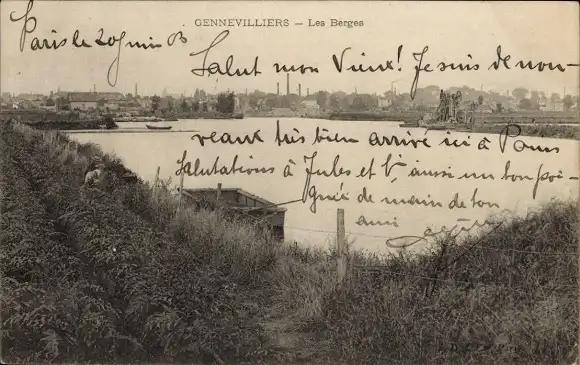 GENNEVILLIERS – Les Berges
Paris le 20 Juin 03
Salut mon Vieux! Je suis de nou-
veaux très bien arrivé ici à Paris
Salutations à Jules et aussi un bon poi-
gnée de main de ton
ami